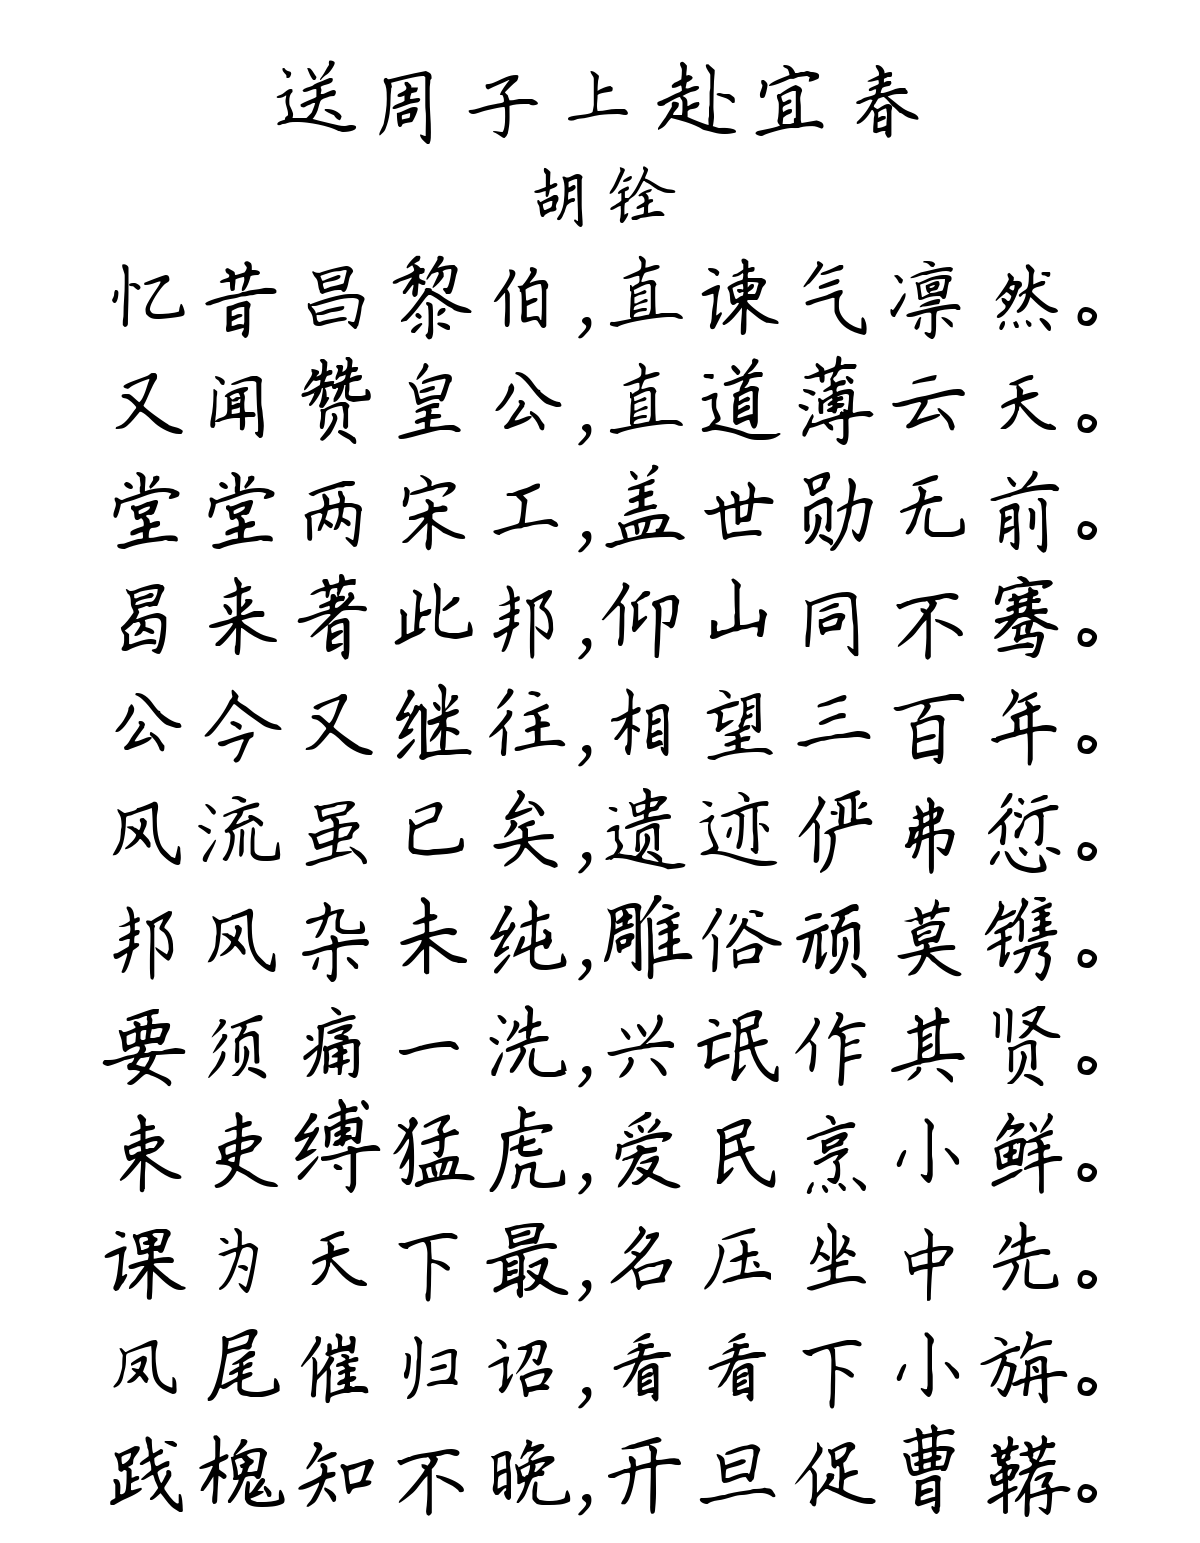 送周子上赴宜春
胡铨
忆昔昌黎伯,直谏气凛然。
又闻赞皇公,直道薄云天。
堂堂两宋工,盖世勋无前。
曷来著此邦,仰山同不骞。
公今又继往,相望三百年。
风流虽已矣,遗迹俨弗愆。
邦风杂未纯,雕俗顽莫镌。
要须痛一洗,兴氓作其贤。
束吏缚猛虎,爱民烹小鲜。
课为天下最,名压坐中先。
凤尾催归诏,看看下小旃。
践槐知不晚,开旦促曹鞯。